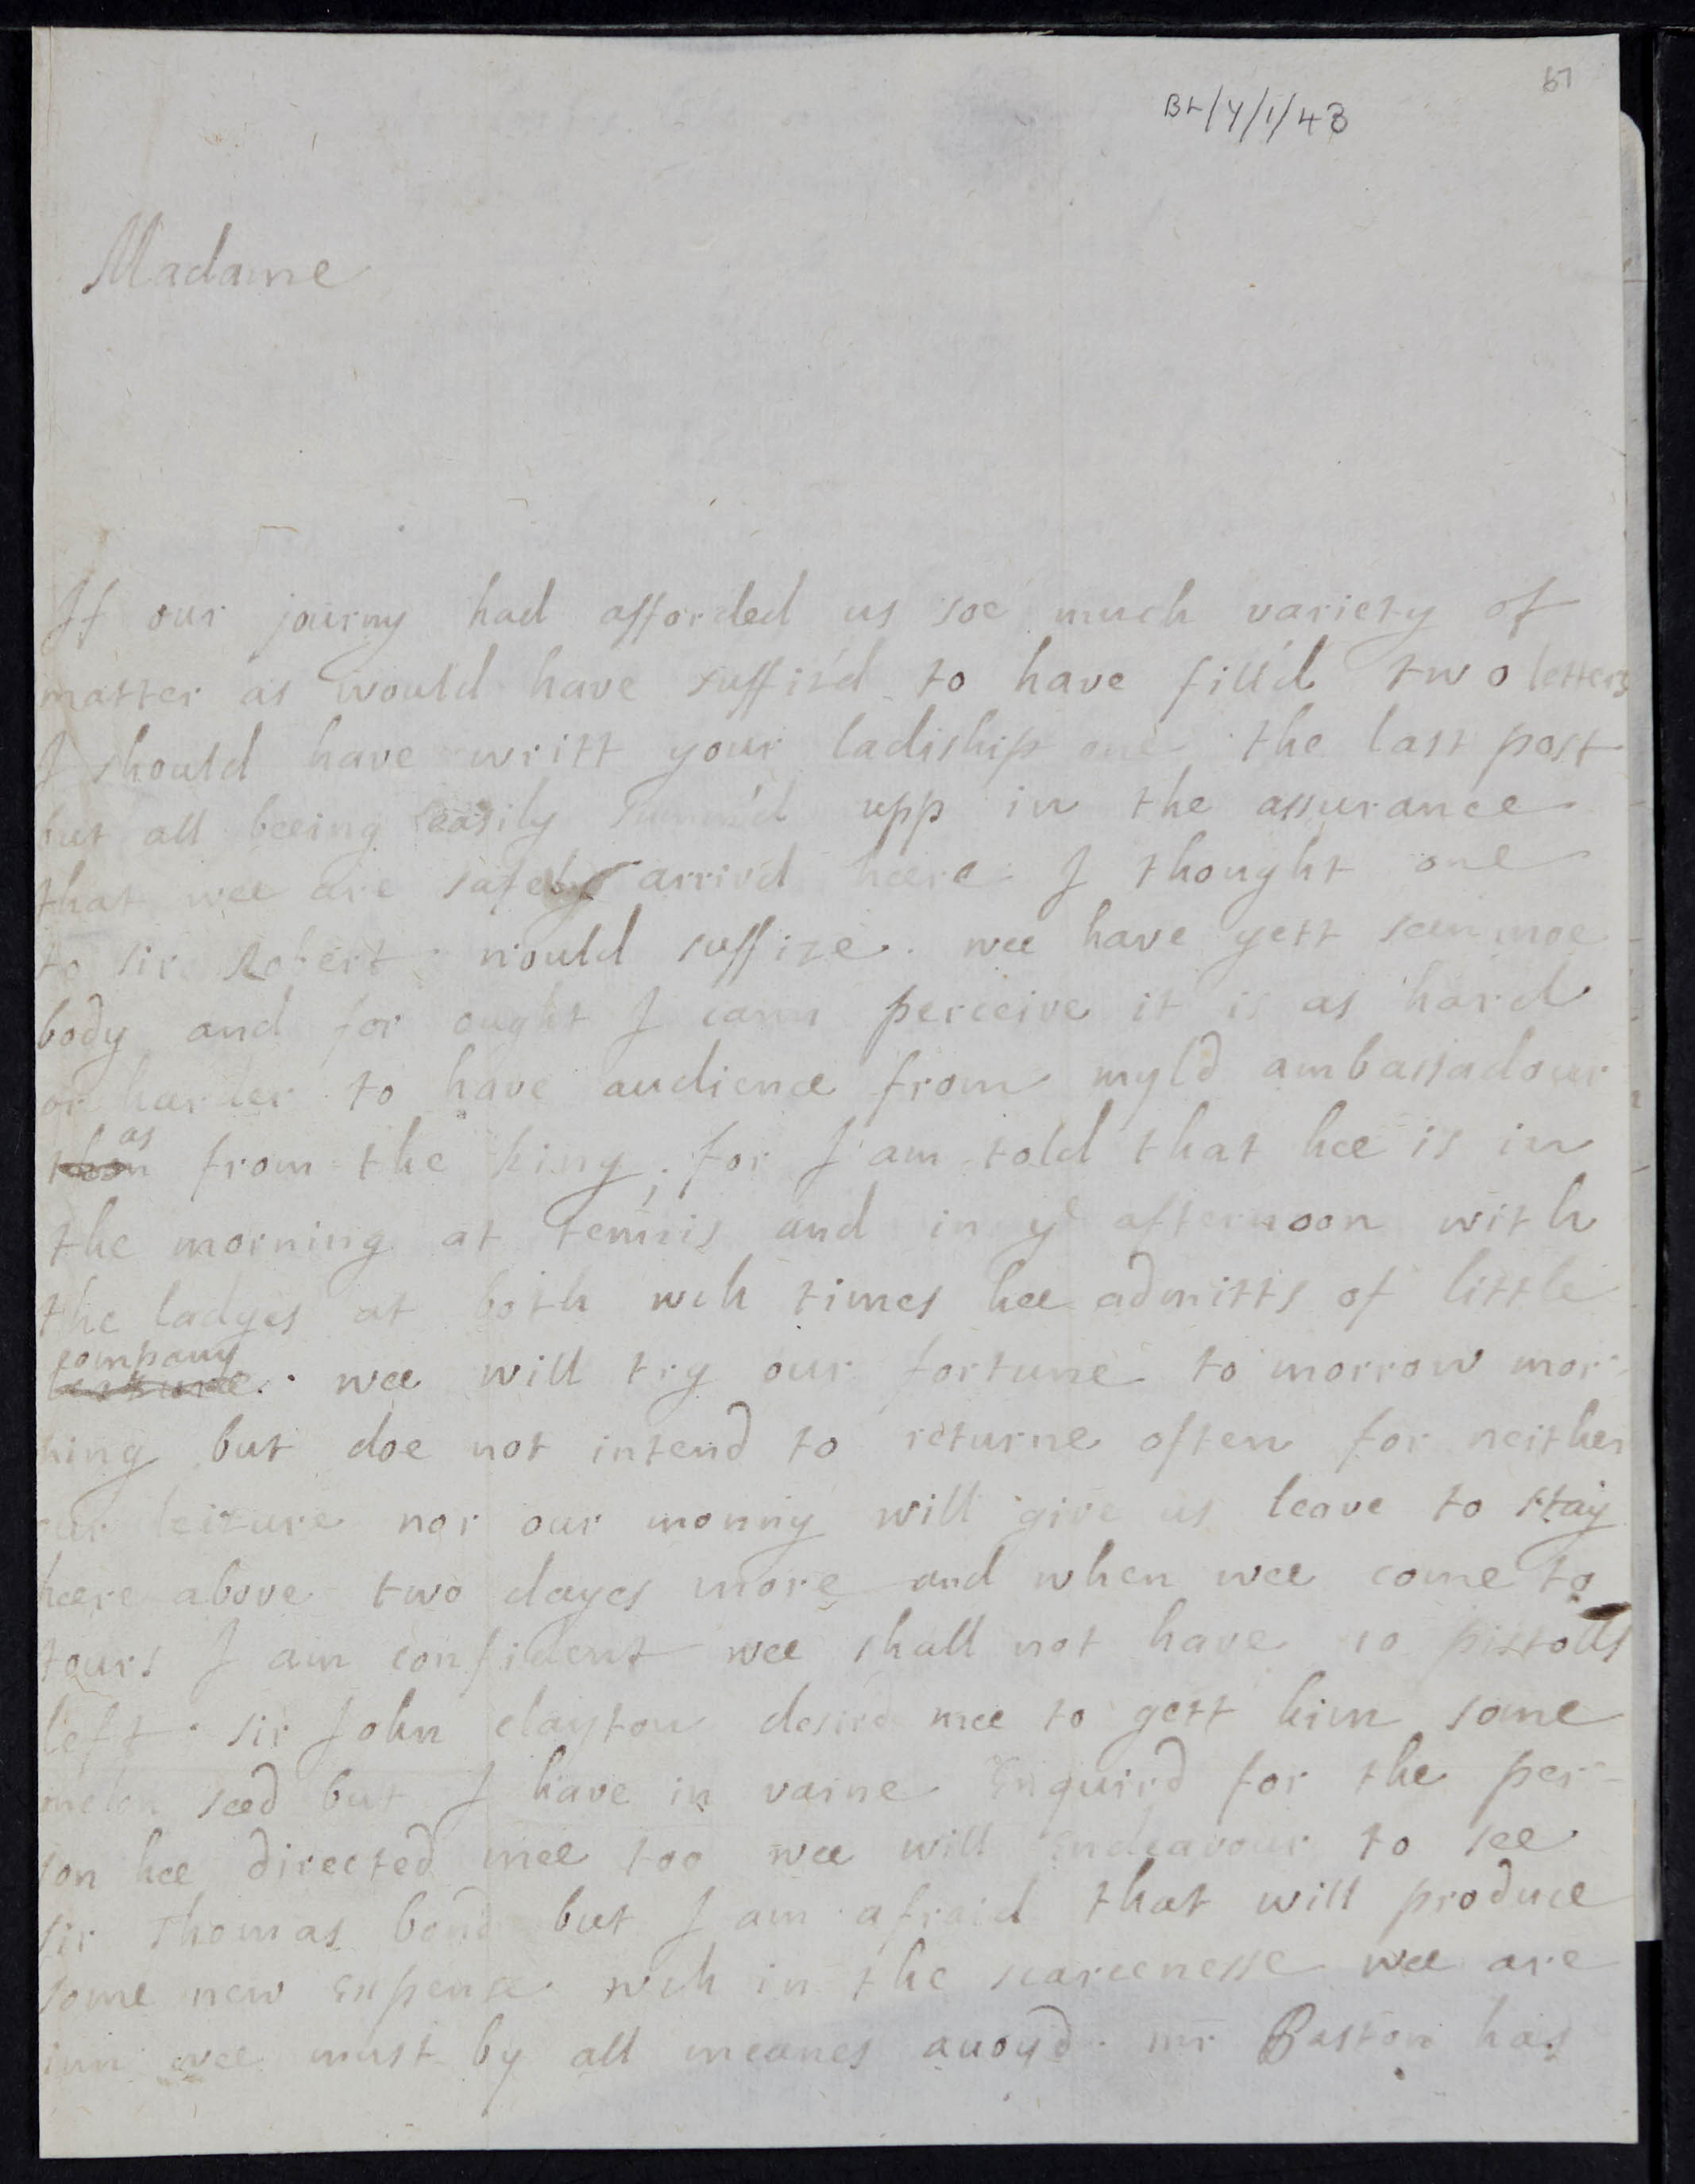 67
BL/Y/1/43
Madame
If our journy had afforded us soe much variety of
matter as would have suffiz'd to have fill'd two letters
I should have writt your ladiship one the last post
but all beeing easily summ'd upp in the assurance
that wee are safely arriv'd heere I thought one
to sir Robert would suffize. wee have yett seen noe
body and for ought I cann perceive it is as hard
or harder to have audience from myld ambassadour
then as from the king; for I am told that hee is in
the morning at tennis and in ye afternoon with
the ladyes at both wch times hee admitts of little
company. wee will try our fortune to morrow mor-
ning but doe not intend to returne often for neither
our leizure nor our monny will give us leave to stay
heere above two dayes more and when wee come to
tours I am confident wee shall not have 10 pistolls
left. sir John clayton desird mee to gett him some
melon seed but I have in vaine Enquird for the per-
son hee directed mee too wee will Endeavour to see
sir Thomas bond but I am afraid that will produce
some new Expence wch in the scarcenesse wee are
inn wee must by all meanes auoyd. mr Baston has